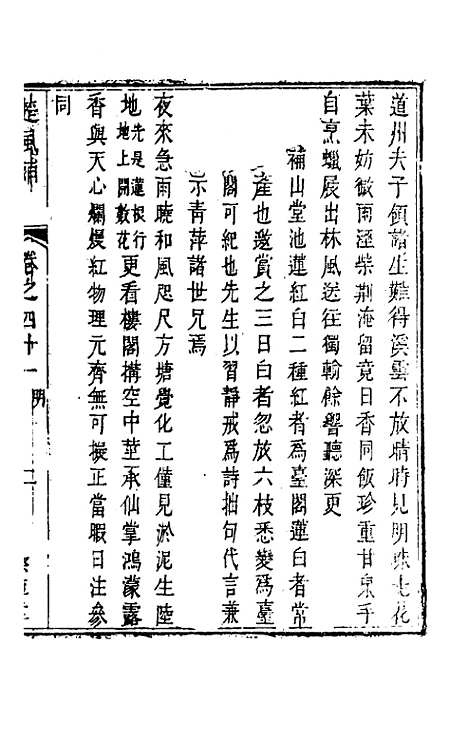 道州夫子領諸生難得溪雲不放晴時見明珠七花
葉未妨微雨溼柴荆淹留竟日香同飯珍重甘泉手
自烹蠟屐出林風送徃獨輸餘響聽深更
補山堂池蓮紅白二種紅者爲臺閣蓮白者常
産也邀賞之三日白者忽放六枝悉變爲臺
閣可紀也先生以習靜戒爲詩拙句代言兼
示青萍諸世兄焉
夜來急雨曉和風咫尺方塘覺化工僅見淤泥生陸
地先是蓮根行地上開數花更看樓閣搆空中莖承仙掌鴻蒙露
香與天心爛熳紅物理元齊無可擬正當暇日注參
同
楚風補
卷之四十一
明